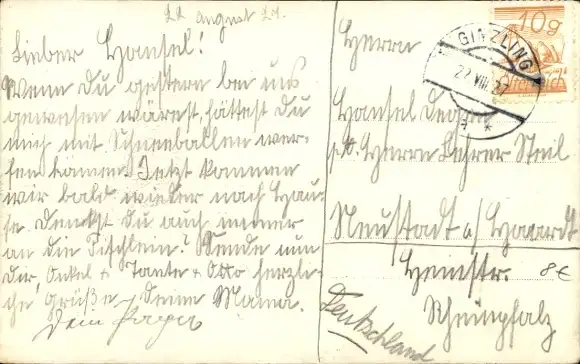 22 August 27.
Lieber Hansel!
Wenn Du gestern bei uns
gewesen wärest, hättest Du
mich mit Schneeballen wer-
fen können. Jetzt kommen
wir bald wieder nach Hau-
se. Denkst Du auch immer
an die Fischlein? Wende nun
Dir, Onkel + Tante + Otto herzli-
che Grüße, Deine Mama.
Dein Papa
10g
Österreich
GINZLING
22.VIII.27
a *
Herrn
Hansel
Herrn Lehrer Steil
Neustadt a/Haardt
Heinestr.
8€
Rheinpfalz
Deutschland